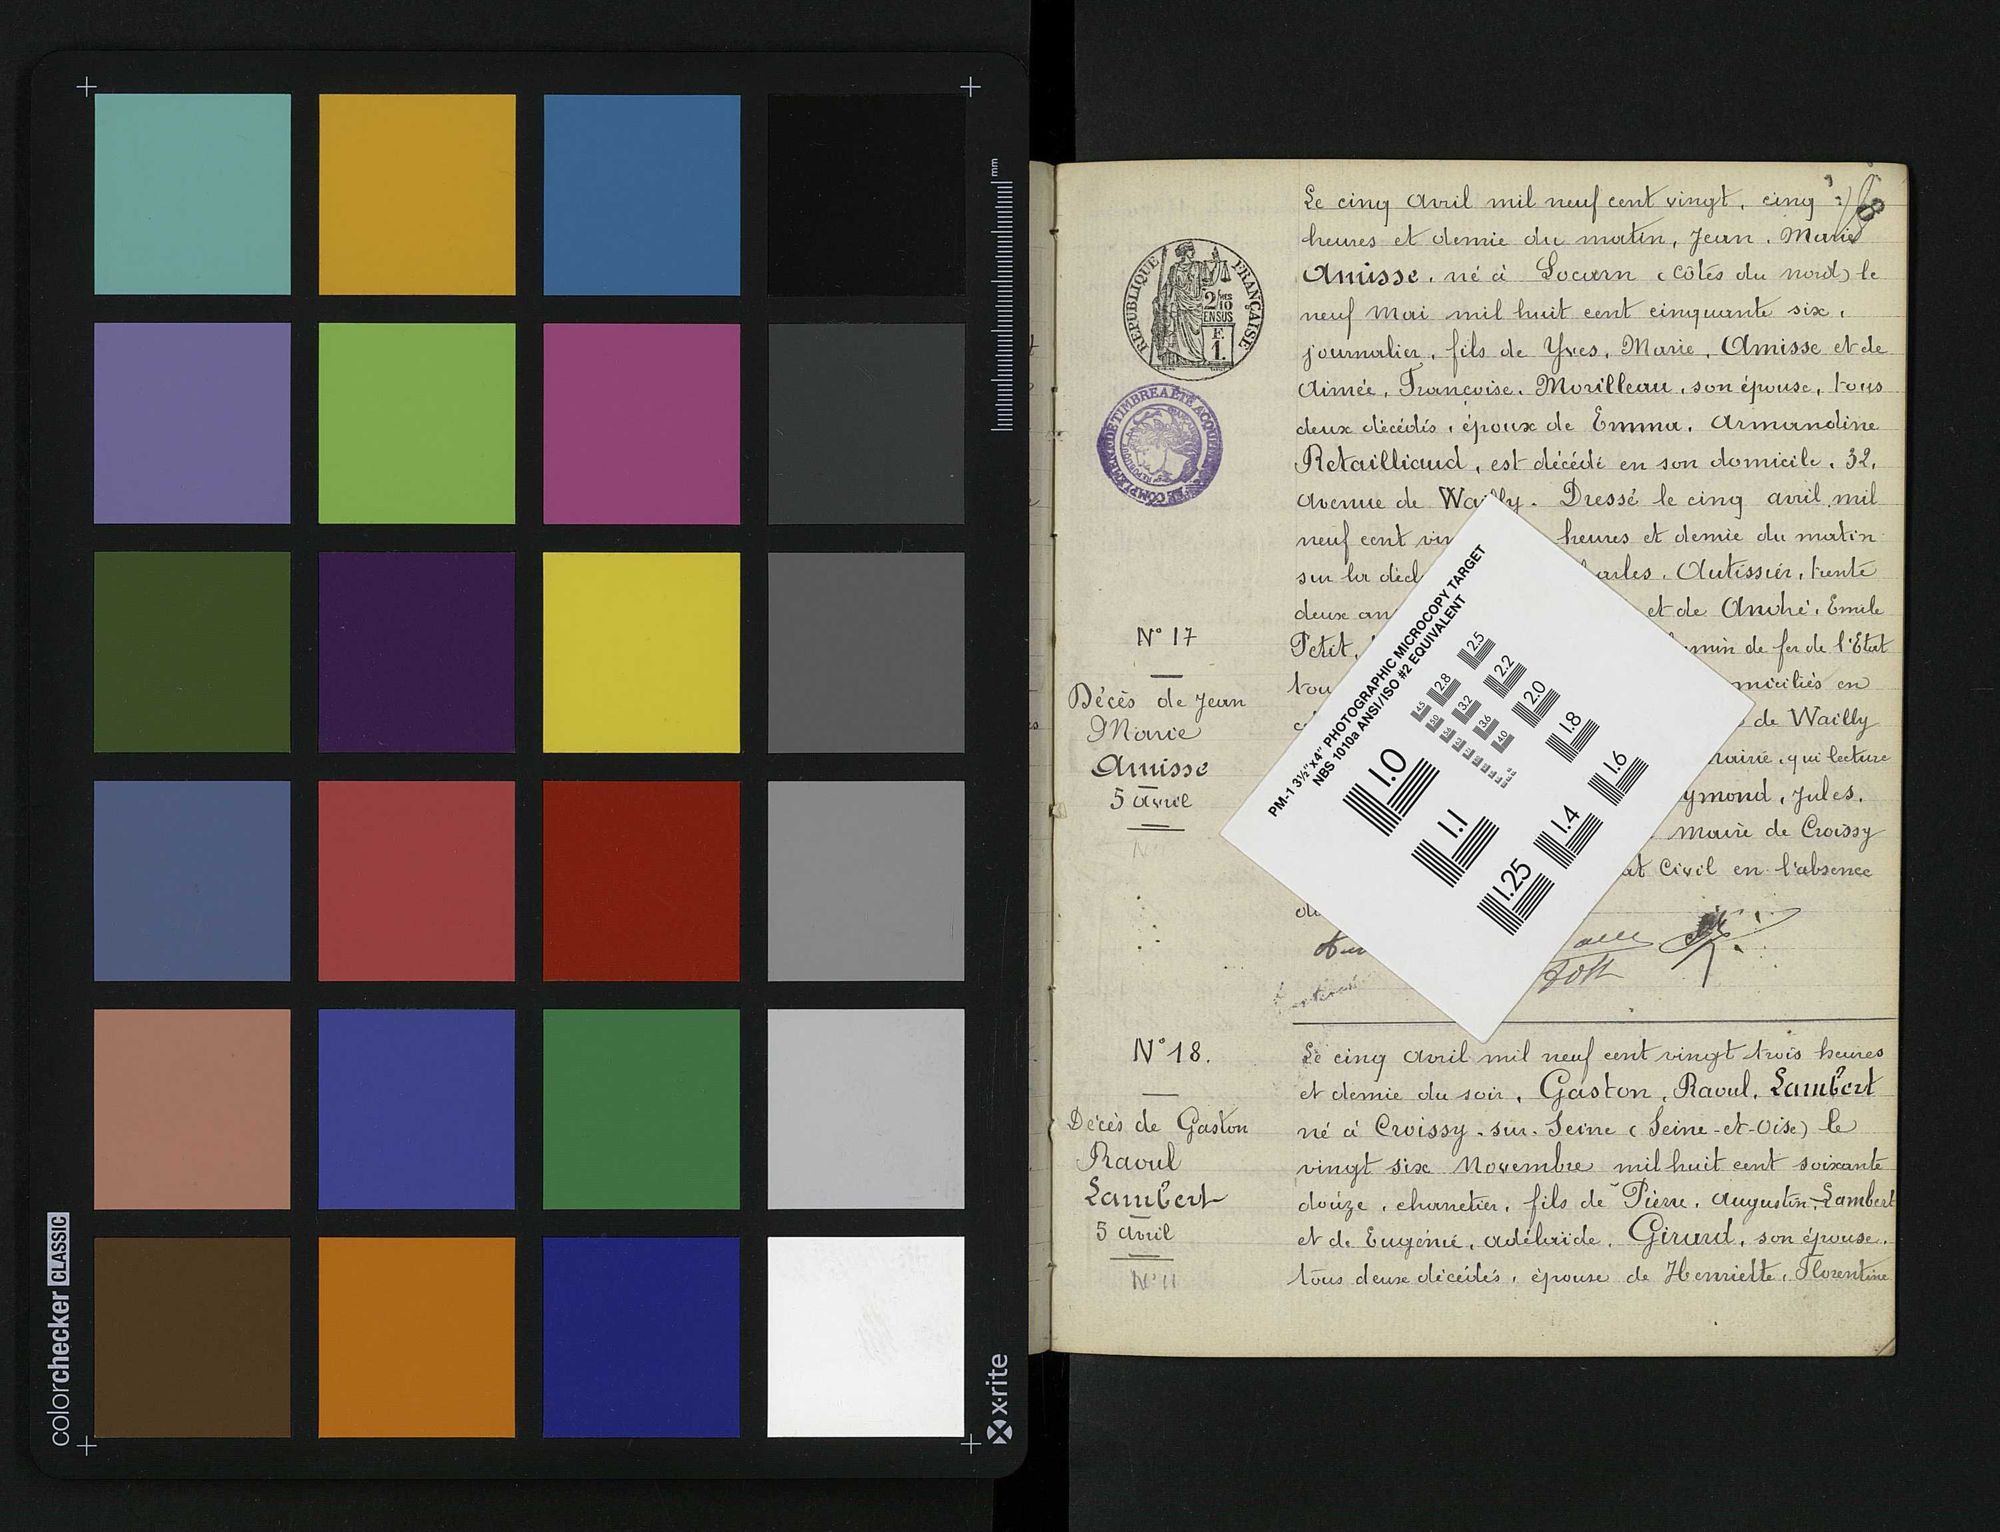 colorchecker CLASSIC
x-rite
mm
8
RÉPUBLIQUE FRANÇAISE
2/10
EN SUS
F.
1.
Le cinq Avril mil neuf cent vingt, cinq
heures et demie du matin, Jean, Marie
Amisse, né à Locarn (Côtes du nord) le
neuf Mai mil huit cent cinquante six,
journalier, fils de Yves, Marie, Amisse et de
Aimée, Françoise, Morilleau, son épouse, tous
deux décédés, époux de Emma, Armandine
Retailliaud, est décédé en son domicile, 32,
avenue de Wailly. Dressé le cinq avril mil
neuf cent vin heures et demie du matin
sur la décl harles, Autissier, trente
deux an et de André, Emile
Petit, min de fer de l'Etat
tou miciliés en
de Wailly
mairie, qui lecture
ymond, Jules,
maire de Croissy
at Civil en l'absence
N° 17
Décès de Jean
Marie
Amisse
5 Avril
PM-1 3½"x4" PHOTOGRAPHIC MICROCOPY TARGET
NBS 1010a ANSI/ISO #2 EQUIVALENT
1.0
1.1
1.25
1.4
1.6
1.8
2.0
2.2
2.5
2.8
3.2
3.6
4.0
4.5
5.0
5.6
N° 18.
Décès de Gaston
Raoul
Lambert
5 Avril
N° 11
Le cinq Avril mil neuf cent vingt trois heures
et demie du soir, Gaston, Raoul, Lambert
né à Croissy-sur-Seine (Seine-et-Oise) le
vingt six Novembre mil huit cent soixante
douze, charretier, fils de Pierre, Augustin, Lambert
et de Eugénie, adélaïde, Girard, son épouse,
tous deux décédés, épouse de Henriette, Florentine